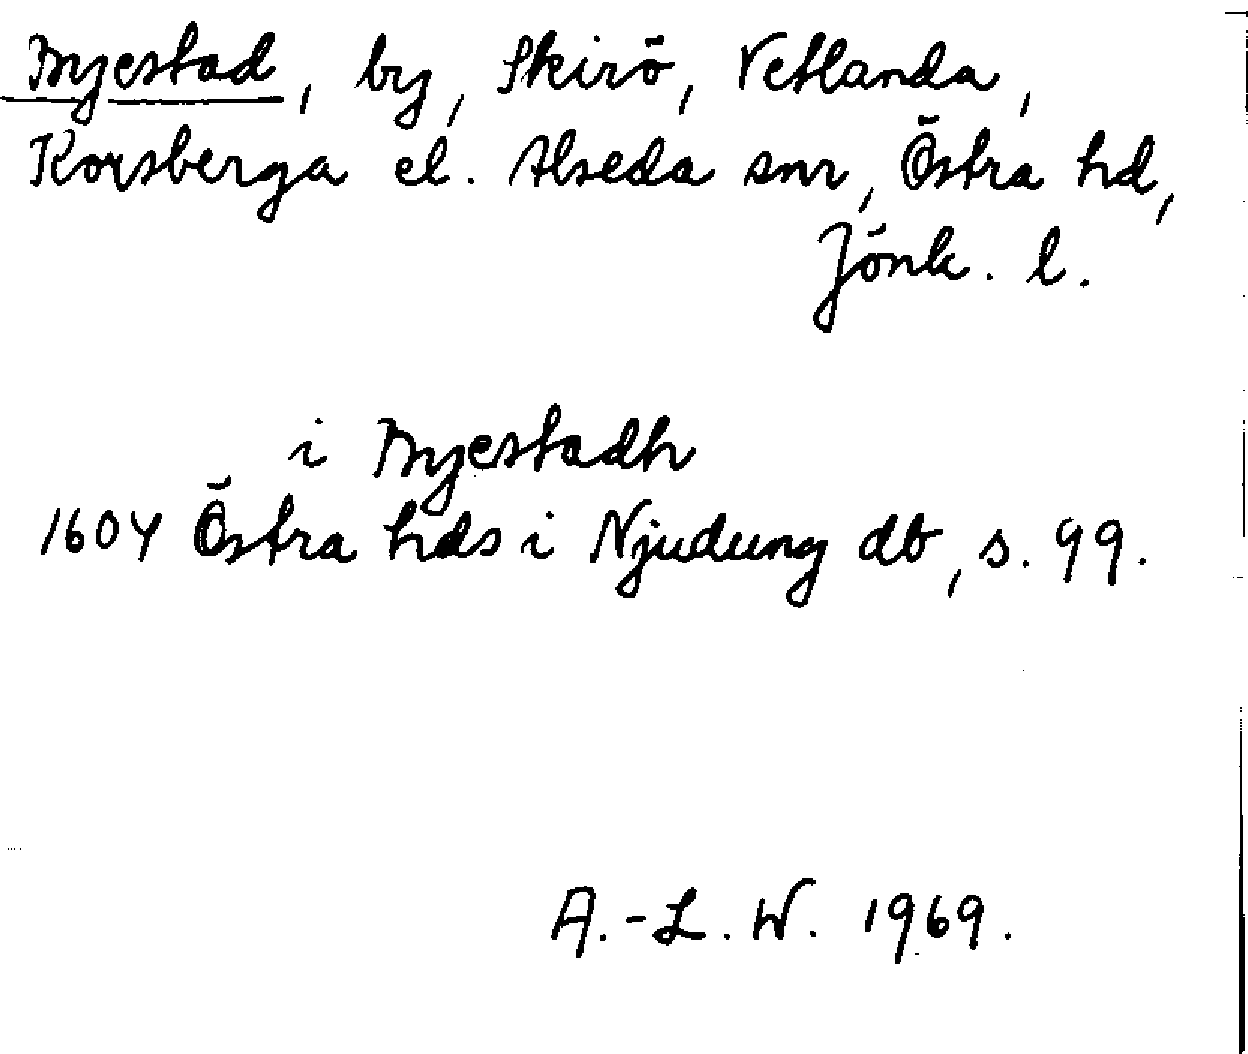 Byestad, by, Skirö, Vetlanda,
Korsberga el. Alseda snr, Östra hd,
Jönk. l.
i Byestadh
1604 Östra hds i Njudung db, s. 99.
A.-L. W. 1969.